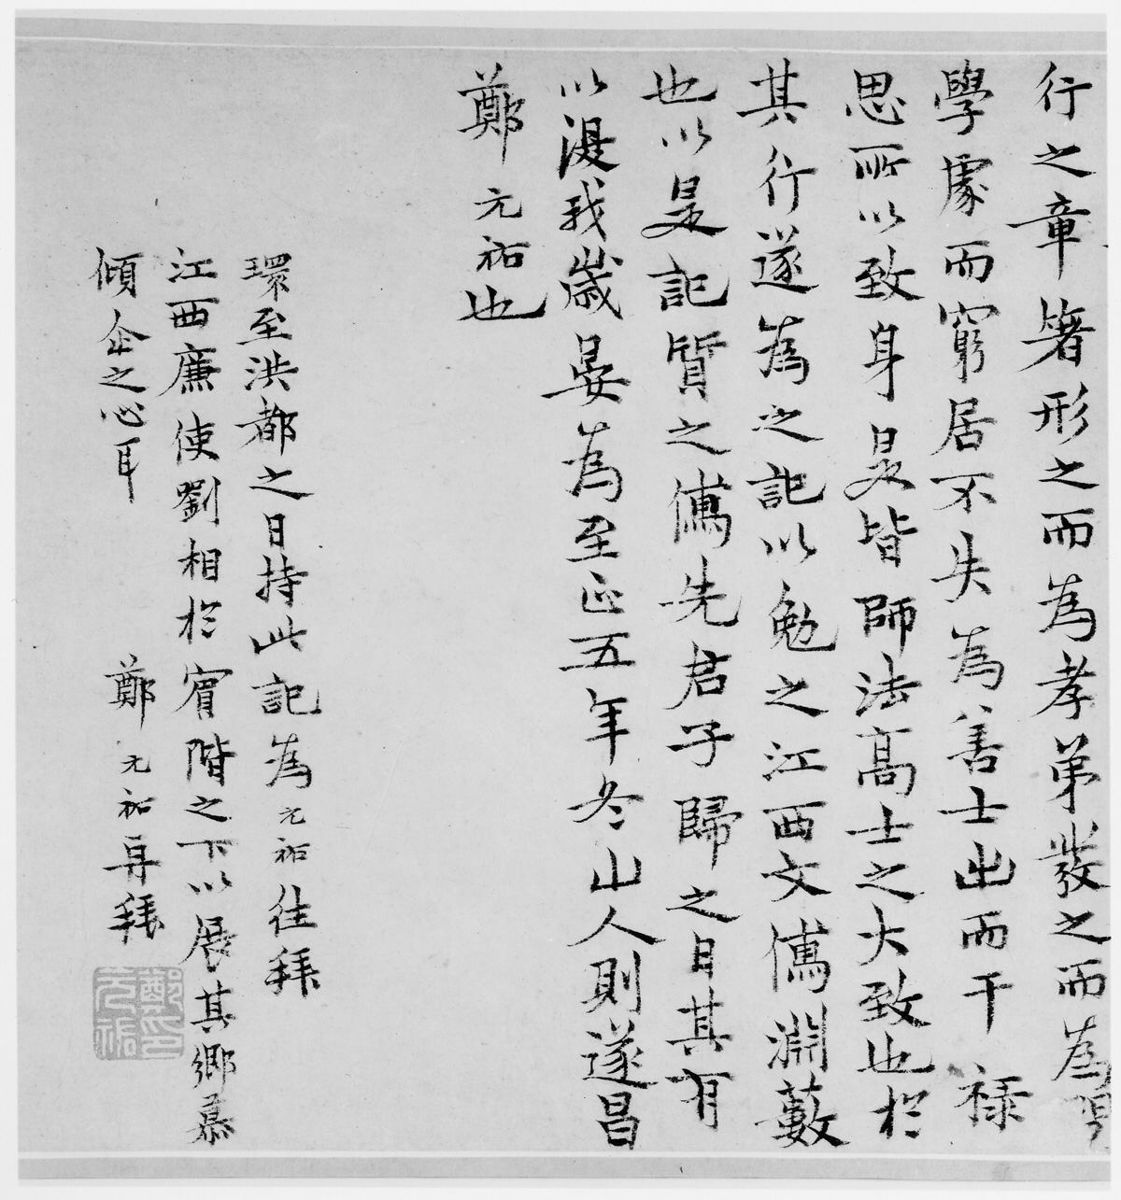 行之章箸形之而為孝弟發之而為
學處而窮居不失為善士出而干祿
思所以致身是皆師法高士之大致也於
其行遂為之記以勉之江西文儒淵藪
也以是記質之儒先君子歸之日其有
以我歲晏為至正五年冬山人則遂昌
鄭元祐也
環至洪都之日持此記為元祐往拜
江西廉使劉相於賓階之下以展其鄉慕
傾企之心耳 鄭元祐再拜
鄭元祐印